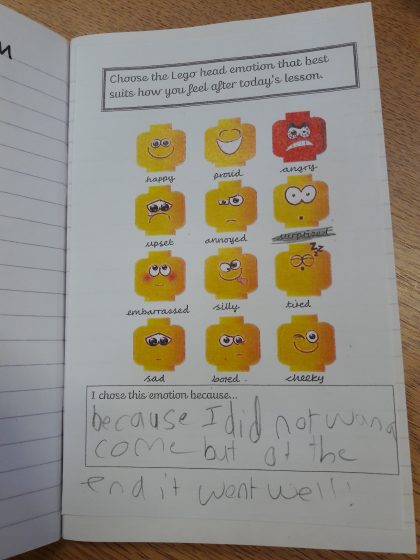 Choose the Lego head emotion that best
suits how you feel after today's lesson.
happy proud angry
upset annoyed surprised
zzz
embarrassed silly tired
sad bored cheeky
I chose this emotion because...
because I did not wana
come but at the
end it went well!